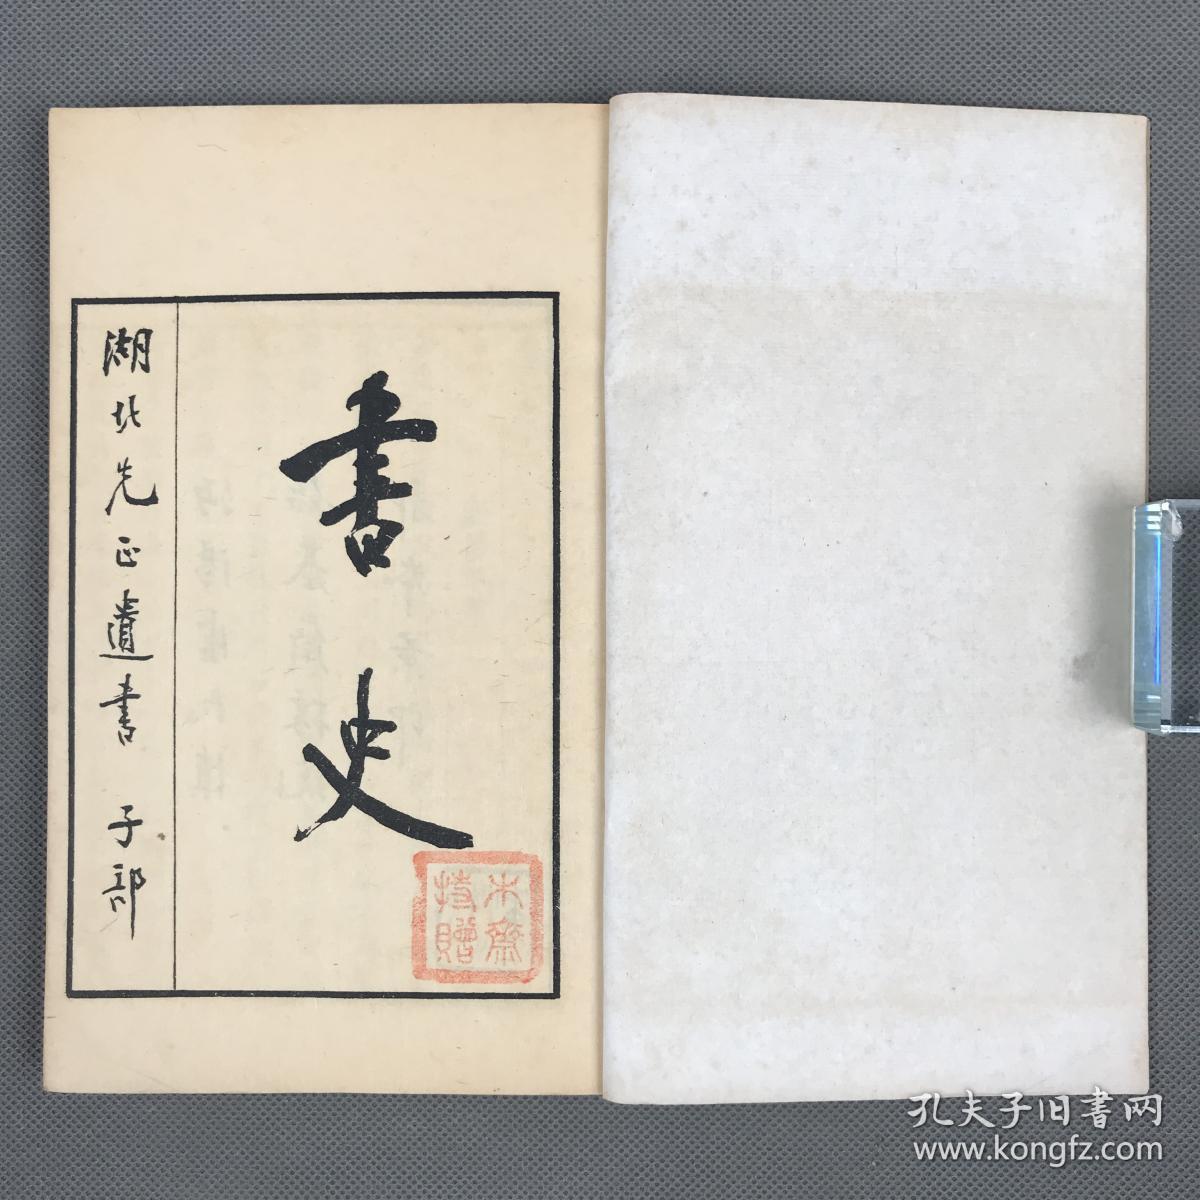 書史
湖北先正遺書 子部
木齋
持贈
孔夫子旧書网
www.kongfz.com